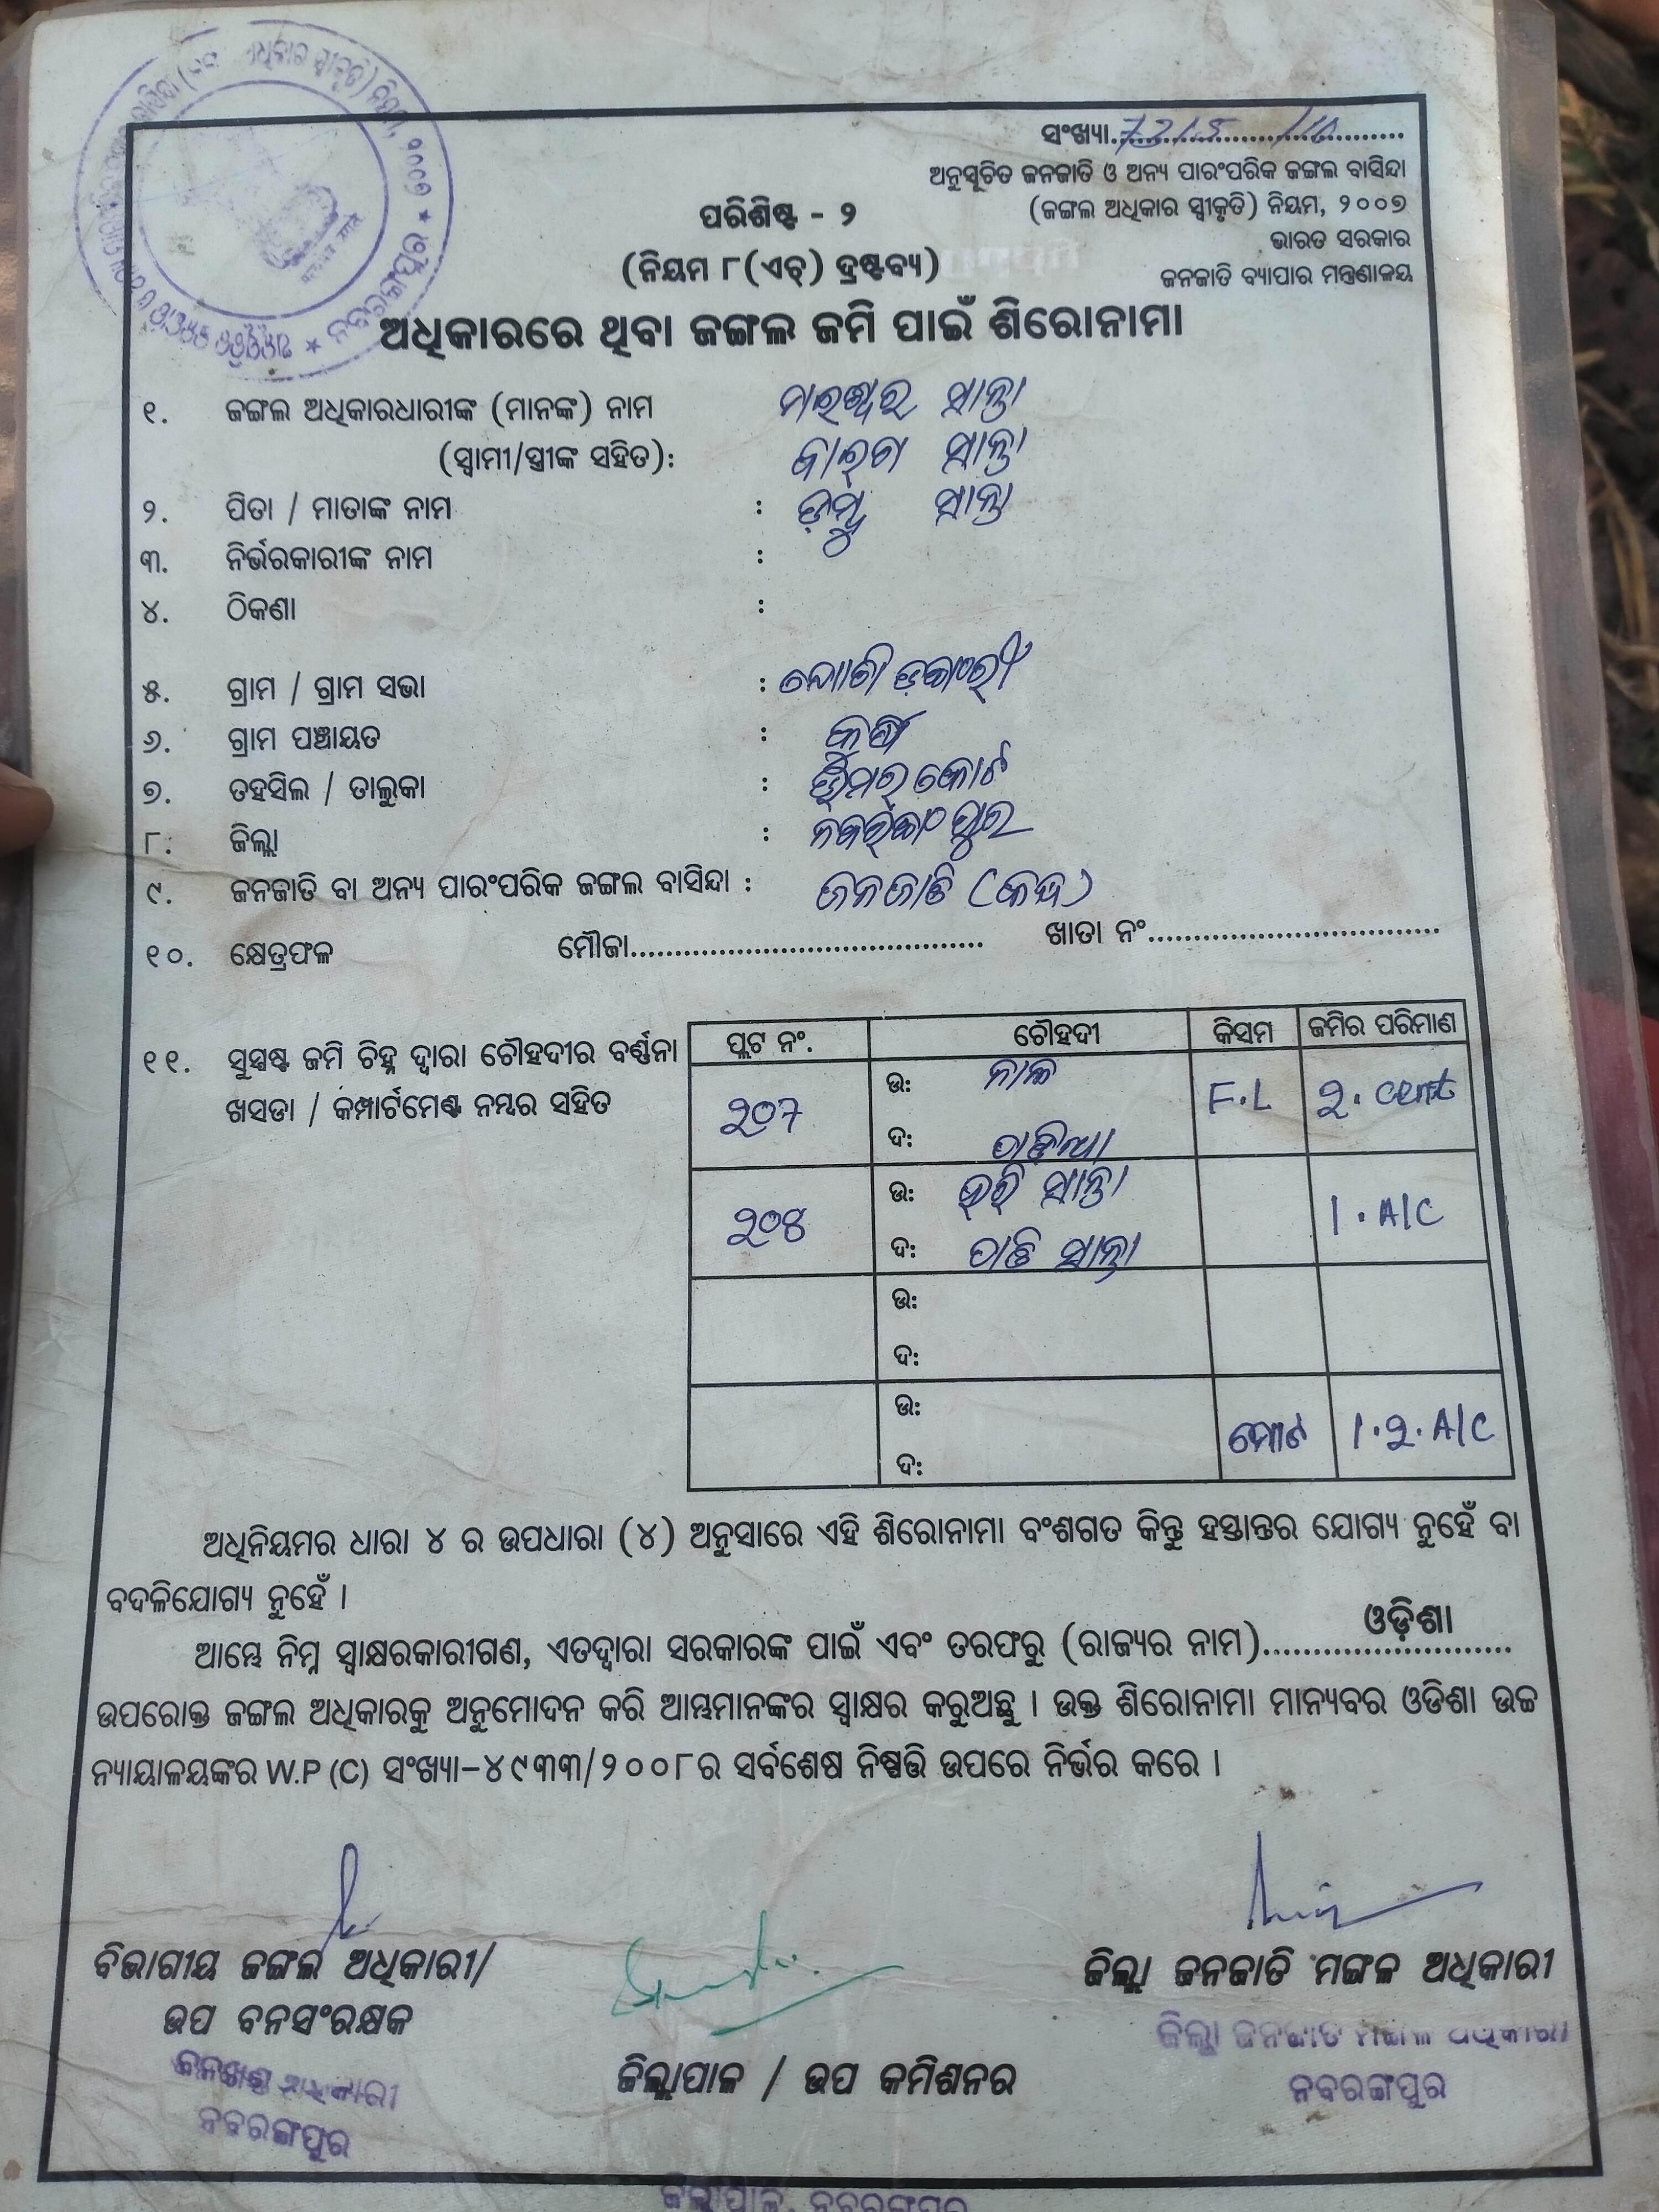 ସଂଖ୍ୟା
ଅନୁସୂଚିତ ଜନଜାତି ଓ ଅନ୍ୟ ପାରଂପରିକ ଜଙ୍ଗଲ ବାସିନ୍ଦା
(ଜଙ୍ଗଲ ଅଧିକାର ସ୍ୱୀକୃତି) ନିୟମ, ୨୦୦୭
ଭାରତ ସରକାର
ଜନଜାତି ବ୍ୟାପାର ମନ୍ତ୍ରଣାଳୟ
ପରିଶିଷ୍ଟ - ୨
(ନିୟମ ୮(ଏଚ୍) ଦ୍ରଷ୍ଟବ୍ୟ)
ଅଧିକାରରେ ଥିବା ଜଙ୍ଗଲ ଜମି ପାଇଁ ଶିରୋନାମା
୧. ଜଙ୍ଗଲ ଅଧିକାରଧାରୀଙ୍କ (ମାନଙ୍କ) ନାମ ସାନ୍ତା
(ସ୍ୱାମୀ/ସ୍ତ୍ରୀଙ୍କ ସହିତ): ସାନ୍ତା
୨. ପିତା / ମାତାଙ୍କ ନାମ : ସାନ୍ତା
୩. ନିର୍ଭରକାରୀଙ୍କ ନାମ :
୪. ଠିକଣା :
୫. ଗ୍ରାମ / ଗ୍ରାମ ସଭା :
୬. ଗ୍ରାମ ପଞ୍ଚାୟତ :
୭. ତହସିଲ / ତାଲୁକା : ଉମରକୋଟ
୮. ଜିଲ୍ଲା : ନବରଙ୍ଗପୁର
୯. ଜନଜାତି ବା ଅନ୍ୟ ପାରଂପରିକ ଜଙ୍ଗଲ ବାସିନ୍ଦା : ଜନଜାତି
୧୦. କ୍ଷେତ୍ରଫଳ ମୌଜା.................... ଖାତା ନଂ....................
୧୧. ସୁସ୍ପଷ୍ଟ ଜମି ଚିହ୍ନ ଦ୍ୱାରା ଚୌହଦୀର ବର୍ଣ୍ଣନା
ଖସଡା / କମ୍ପାର୍ଟମେଣ୍ଟ ନମ୍ବର ସହିତ
ପ୍ଲଟ ନଂ. ଚୌହଦୀ କିସମ ଜମିର ପରିମାଣ
୨୦୨ ଉ: ନାଳ F.L ୨. cent
ଦ:
୨୦୫ ଉ: ହରି ସାନ୍ତା 1. A/C
ଦ: ସାନ୍ତା
ଉ:
ଦ:
ଉ: ମୋଟ 1.୨. A/C
ଦ:
ଅଧିନିୟମର ଧାରା ୪ ର ଉପଧାରା (୪) ଅନୁସାରେ ଏହି ଶିରୋନାମା ବଂଶଗତ କିନ୍ତୁ ହସ୍ତାନ୍ତର ଯୋଗ୍ୟ ନୁହେଁ ବା
ବଦଳିଯୋଗ୍ୟ ନୁହେଁ ।
ଆମ୍ଭେ ନିମ୍ନ ସ୍ୱାକ୍ଷରକାରୀଗଣ, ଏତଦ୍ୱାରା ସରକାରଙ୍କ ପାଇଁ ଏବଂ ତରଫରୁ (ରାଜ୍ୟର ନାମ) ଓଡ଼ିଶା
ଉପରୋକ୍ତ ଜଙ୍ଗଲ ଅଧିକାରକୁ ଅନୁମୋଦନ କରି ଆମ୍ଭମାନଙ୍କର ସ୍ୱାକ୍ଷର କରୁଅଛୁ । ଉକ୍ତ ଶିରୋନାମା ମାନ୍ୟବର ଓଡିଶା ଉଚ୍ଚ
ନ୍ୟାୟାଳୟଙ୍କର W.P (C) ସଂଖ୍ୟା-୪୯୩୩/୨୦୦୮ର ସର୍ବଶେଷ ନିଷ୍ପତ୍ତି ଉପରେ ନିର୍ଭର କରେ ।
ବିଭାଗୀୟ ଜଙ୍ଗଲ ଅଧିକାରୀ/
ଉପ ବନସଂରକ୍ଷକ
ବନଖଣ୍ଡ ଅଧିକାରୀ
ନବରଙ୍ଗପୁର
ଜିଲ୍ଲାପାଳ / ଉପ କମିଶନର
ଜିଲ୍ଲା ଜନଜାତି ମଙ୍ଗଳ ଅଧିକାରୀ
ଜିଲ୍ଲା ଜନଜାତି ମଙ୍ଗଳ ଅଧିକାରୀ
ନବରଙ୍ଗପୁର
ଜିଲ୍ଲାପାଳ, ନବରଙ୍ଗପୁର